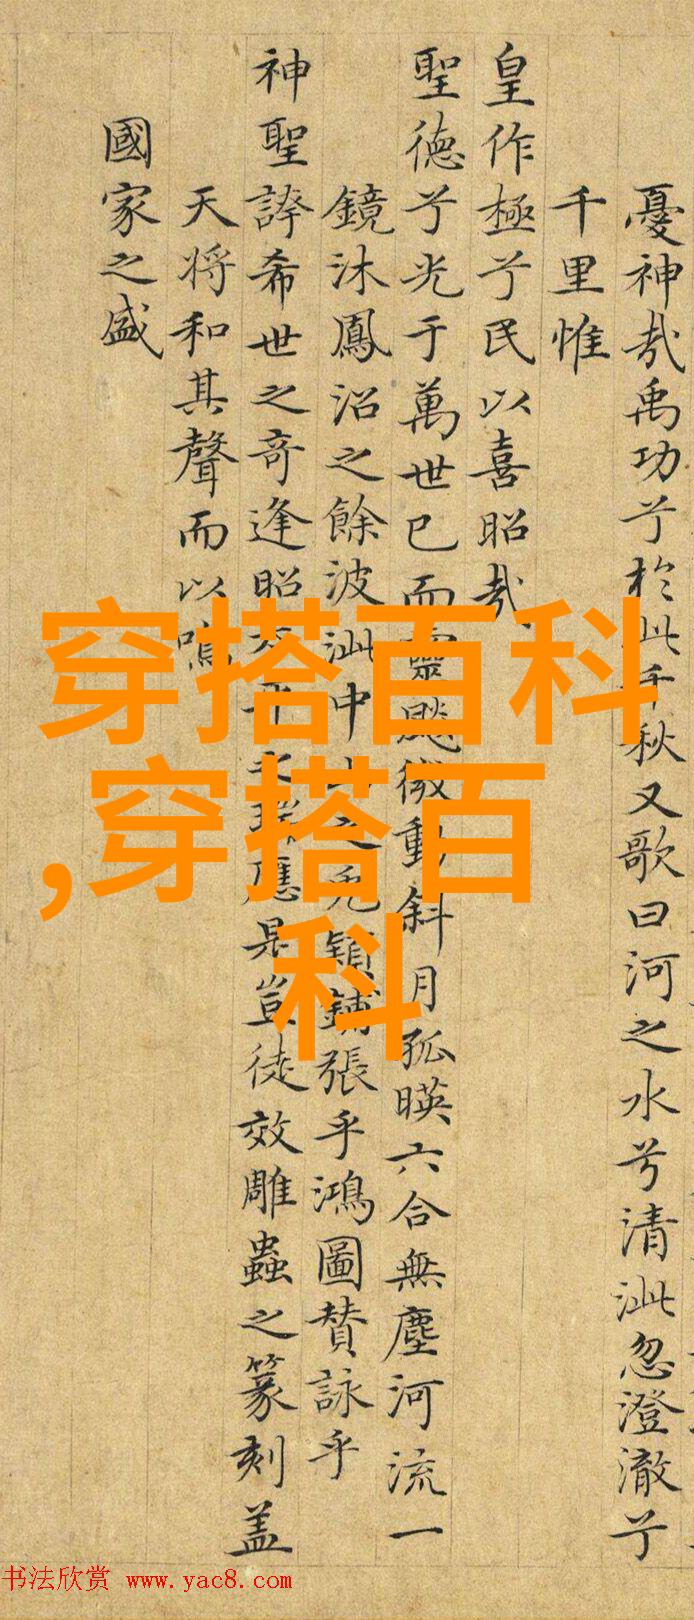 憂神哉禹功兮於此千秋又歌曰河之水兮清泚忽澄澈兮
千里惟
皇作極兮民以喜昭哉
聖德兮光于萬世已而靈飈微動斜月孤暎六合無塵河流一
鏡沐鳳沼之餘波泚中山之兎穎鋪張乎鴻圖賛詠乎
神聖誇希世之奇逢昭平瑞應是豈徒效雕蟲之篆刻盖
天将和其聲而以鳴
國家之盛
穿搭百科
,穿搭百
科
书法欣赏 www.yac8.com